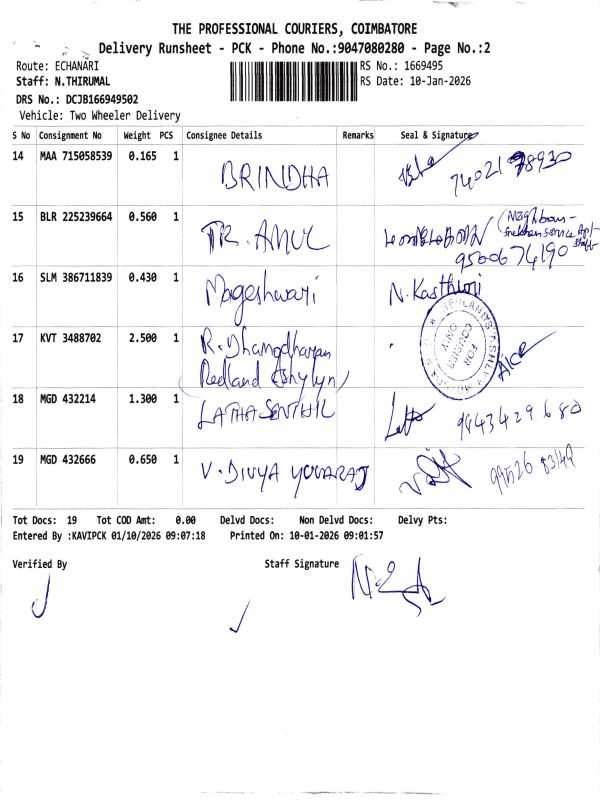 THE PROFESSIONAL COURIERS, COIMBATORE
Delivery Runsheet - PCK - Phone No.:9047080280 - Page No.:2
Route: ECHANARI
RS No.: 1669495
Staff: N.THIRUMAL
RS Date: 10-Jan-2026
DRS No.: DCJB166949502
Vehicle: Two Wheeler Delivery
S No Consignment No Weight PCS Consignee Details Remarks Seal & Signature
14 MAA 715058539 0.165 1 BRINDHA 74021 78930
15 BLR 225239664 0.560 1 TR. 9500674190
16 SLM 386711839 0.430 1 Mageshwari N. Kasthuri
17 KVT 3488702 2.500 1 R. Dhamodharan
FOR COURIER ONLY
18 MGD 432214 1.300 1 LATHA SENTHIL 9443429680
19 MGD 432666 0.650 1 V. DIVYA YUVARAJ
Tot Docs: 19 Tot COD Amt: 0.00 Delvd Docs: Non Delvd Docs: Delvy Pts:
Entered By :KAVIPCK 01/10/2026 09:07:18 Printed On: 10-01-2026 09:01:57
Verified By Staff Signature